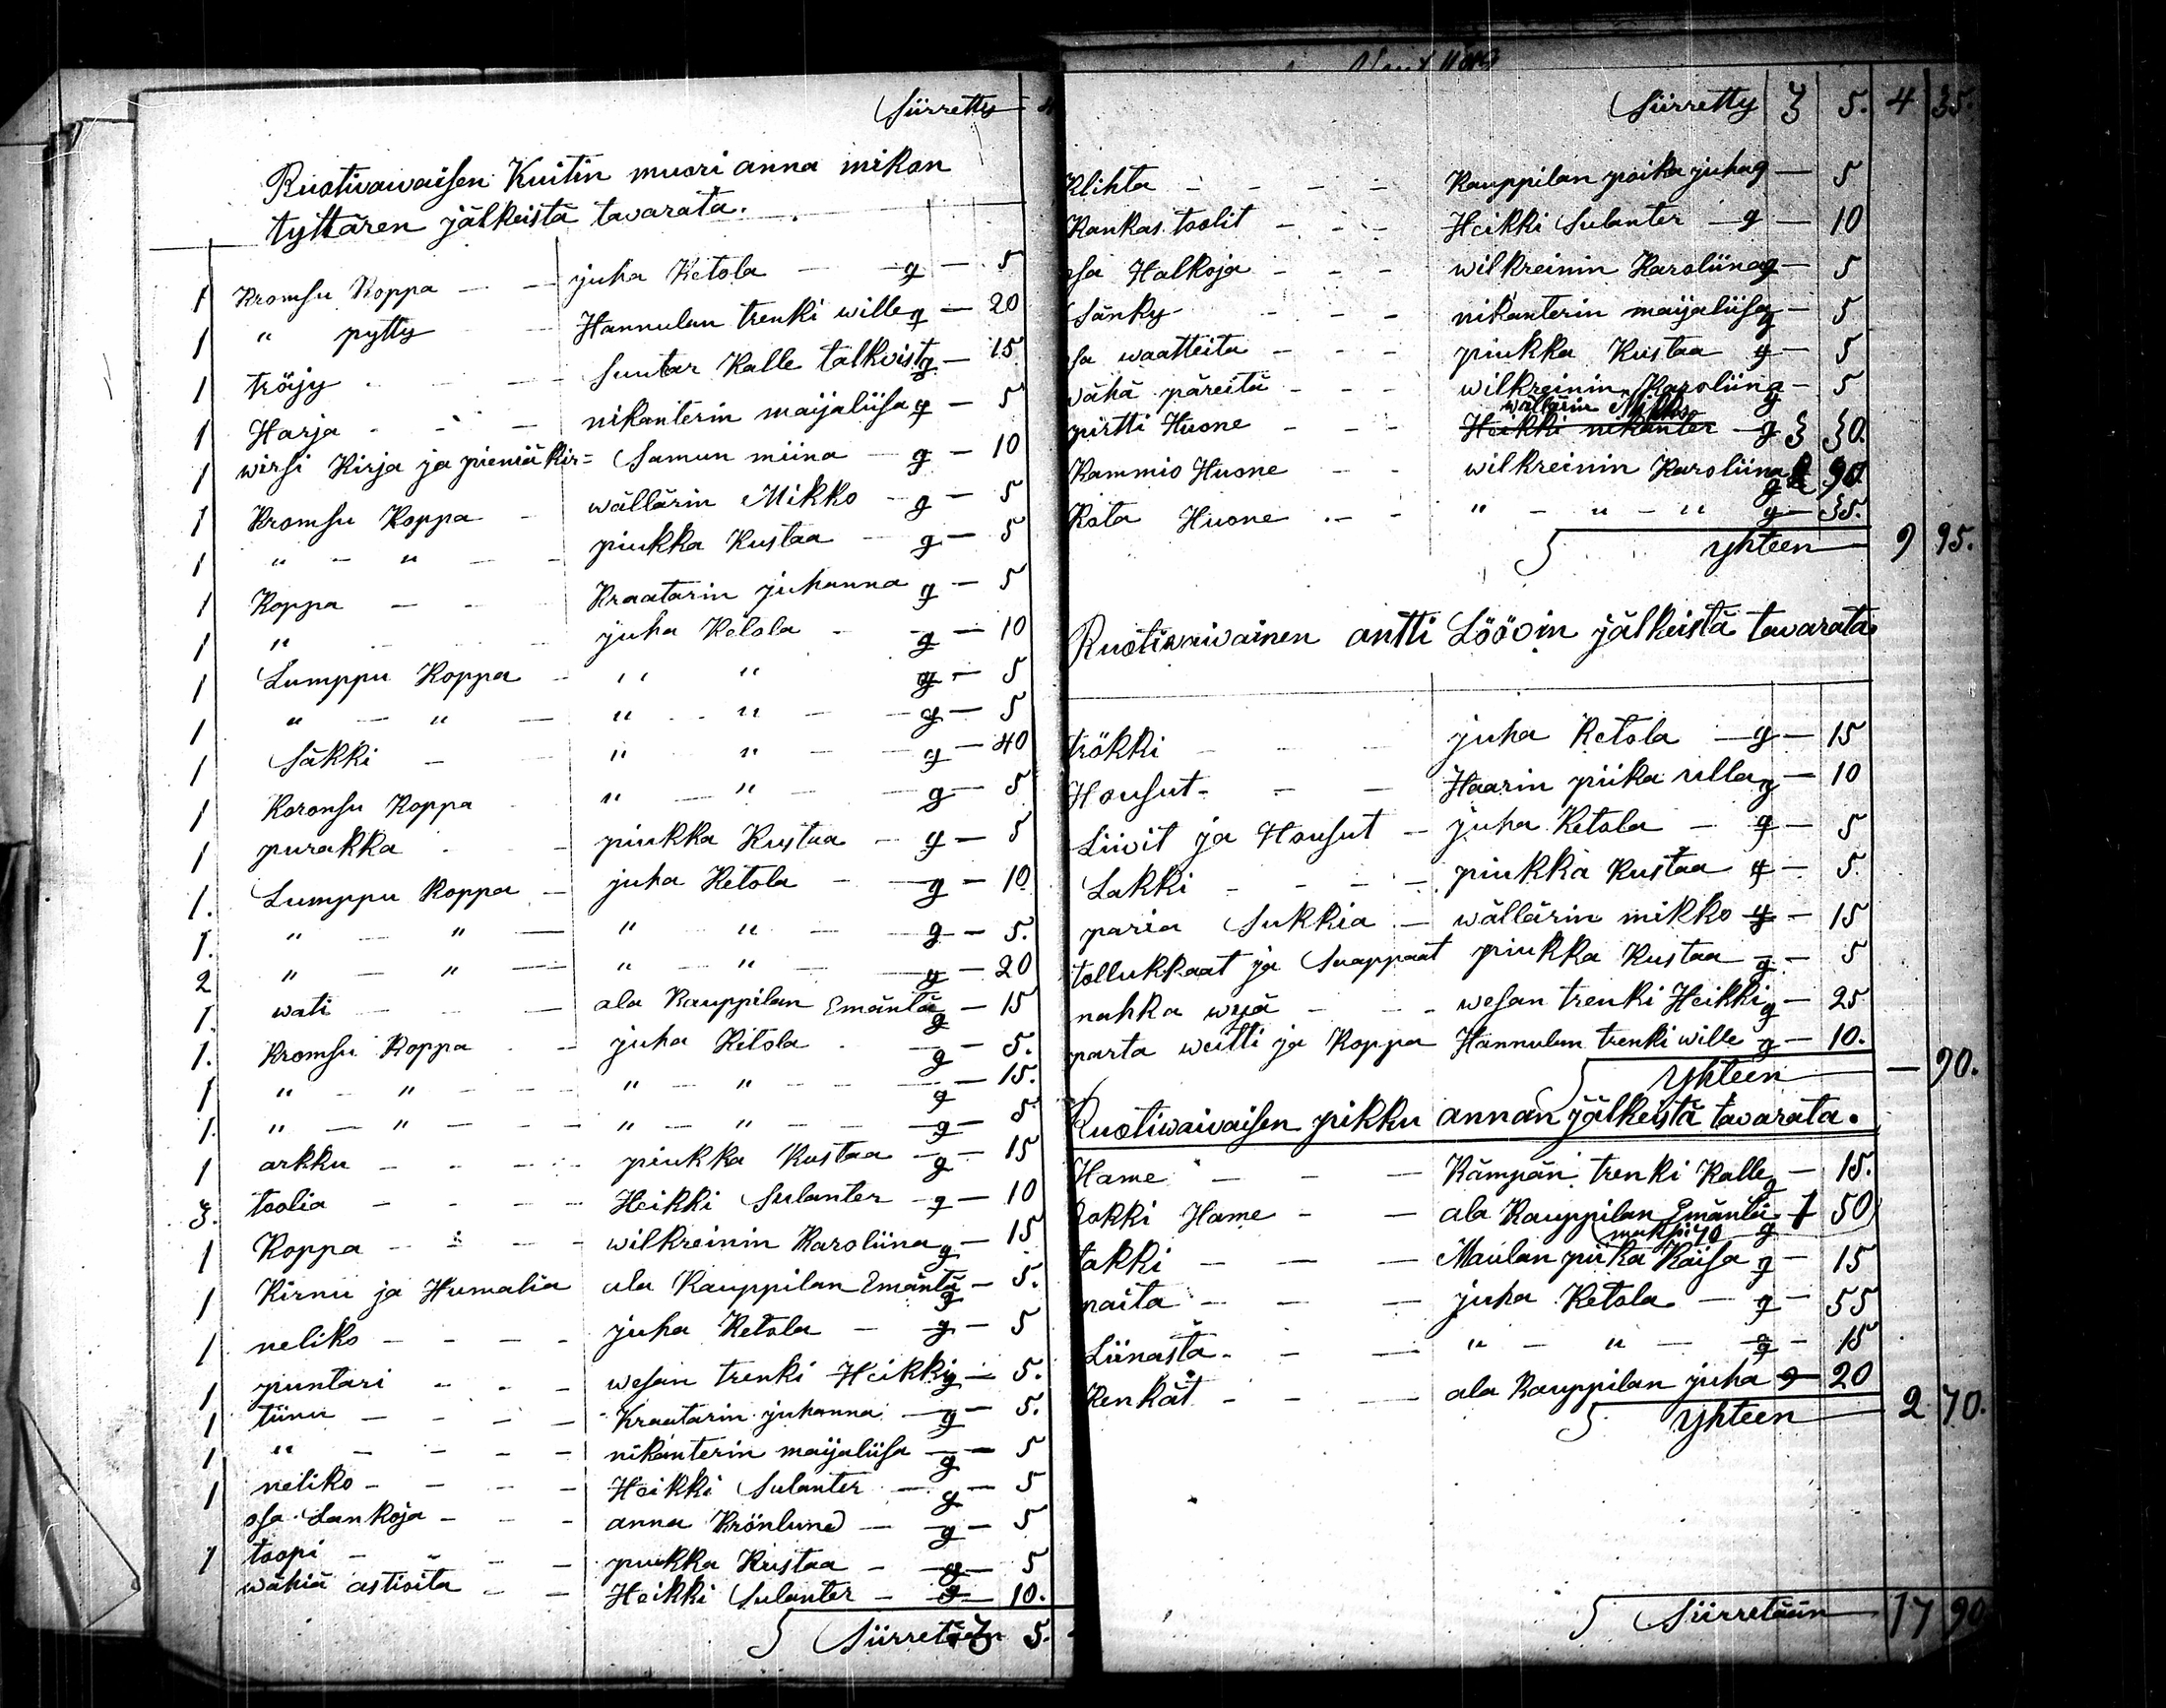 Siirretty 4
Ruotivaivaisen Kuitin muori anna mikon
tyttären jälkeistä tavarata.
1 Kromsu Koppa — — juha Ketola — g — 5
1 " pytty Hannulan trenki wille g — 20
1 tröijy - - - Suutar Kalle talkvist g — 15
1 Harja - - - nikanterin maijaliisa g — 5
1 wirsi Kirja ja pieniä kir= Samun miina — g — 10
1 Kromsu Koppa - wällärin Mikko — g — 5
1 " — " — - piukka Kustaa — g — 5
1 Koppa — - Kraatarin juhanna g — 5
1 " juha Ketola - g — 10
1 Lumppu Koppa - " " g — 5
1 " — " — " - " — g — 5
1 Säkki — " " — g — 40
1 Koromsu Koppa " — " — g — 5
1 purakka - - piukka Kustaa — g — 5
1. Lumppu Koppa — juha Ketola — g — 10
1. " — " — " " — g — 5.
2 " — " — " — " — g — 20
1. wati — — ala Kauppilan Emäntä g — 15
1. Kromsu Koppa - juha Ketola - g — 5.
1 " — " - - " — " — g — 15.
1. " — " — - " — " — g — 5
1 arkku - - - piukka Kustaa — g — 15
3. toolia - - - Heikki Sulanter — g — 10
1 Koppa - - - wilkreinin Karoliina g — 15
1 Kirnu ja Humalia ala Kauppilan Emäntä g — 5.
1 neliko - - - juha Ketola — g — 5
1 puntari - - - wesan trenki Heikki g — 5.
1 tiinu - - - Kraatarin juhanna — g — 5.
1 " - - - nikanterin maijaliisa — g — 5
1 neliko - - - Heikki Sulanter — g — 5
osa Lankoja - - - anna Krönlund — g — 5
1 toopi - - - piukka Kustaa — g — 5
wähiä astioita - - Heikki Sulanter — g — 10.
Siirretään 3 5.
Siirretty 3 5. 4 35.
Klihta - - - - Kauppilan poika juha g — 5
Kankas toolit - - - Heikki Sulanter — g — 10
osa Halkoja - - - wilkreinin Karoliina g — 5
Sänky - - - nikanterin maijaliisa g — 5
osa waatteita - - - piukka Kustaa g — 5
wähä päreitä - - - wilkreinin Karoliina g — 5
wällärin Mikko
pirtti Huone - - - Heikki nikanter — g 3 30.
Kammio Huone - - wilkreinin Karoliina g 2 90
Kota Huone - - " - " - " g — 35.
yhteen — 9 95.
Ruotiwaivainen antti Löövin jälkeistä tavarata
tröKki - - - juha Ketola — g — 15
Housut - - - Haarin piika ulla g — 10
Liivit ja Housut — juha Ketola — g — 5
Lakki - - - - piukka Kustaa g — 5.
paria Sukkia — wällärin mikko g — 15
tollukkaat ja Saappaat piukka Kustaa g — 5
nahka wyö - - - wesan trenki Heikki g — 25
parta weitti ja Koppa Hannulan trenki wille g — 10.
yhteen — — 90.
Ruotiwaivaisen pikku annan jälkeistä tavarata.
Hame - - - Kämpän trenki Kalle g — 15.
Hame - - ala Kauppilan Emäntä g 1 50
takki - - - Maulan piika Kaisa g — 15
paita - - - juha Ketola — g — 55
Liinasta - - - " - " — g — 15
Kenkät - - - ala Kauppilan juha g — 20
yhteen — 2 70.
Siirretään 17 90